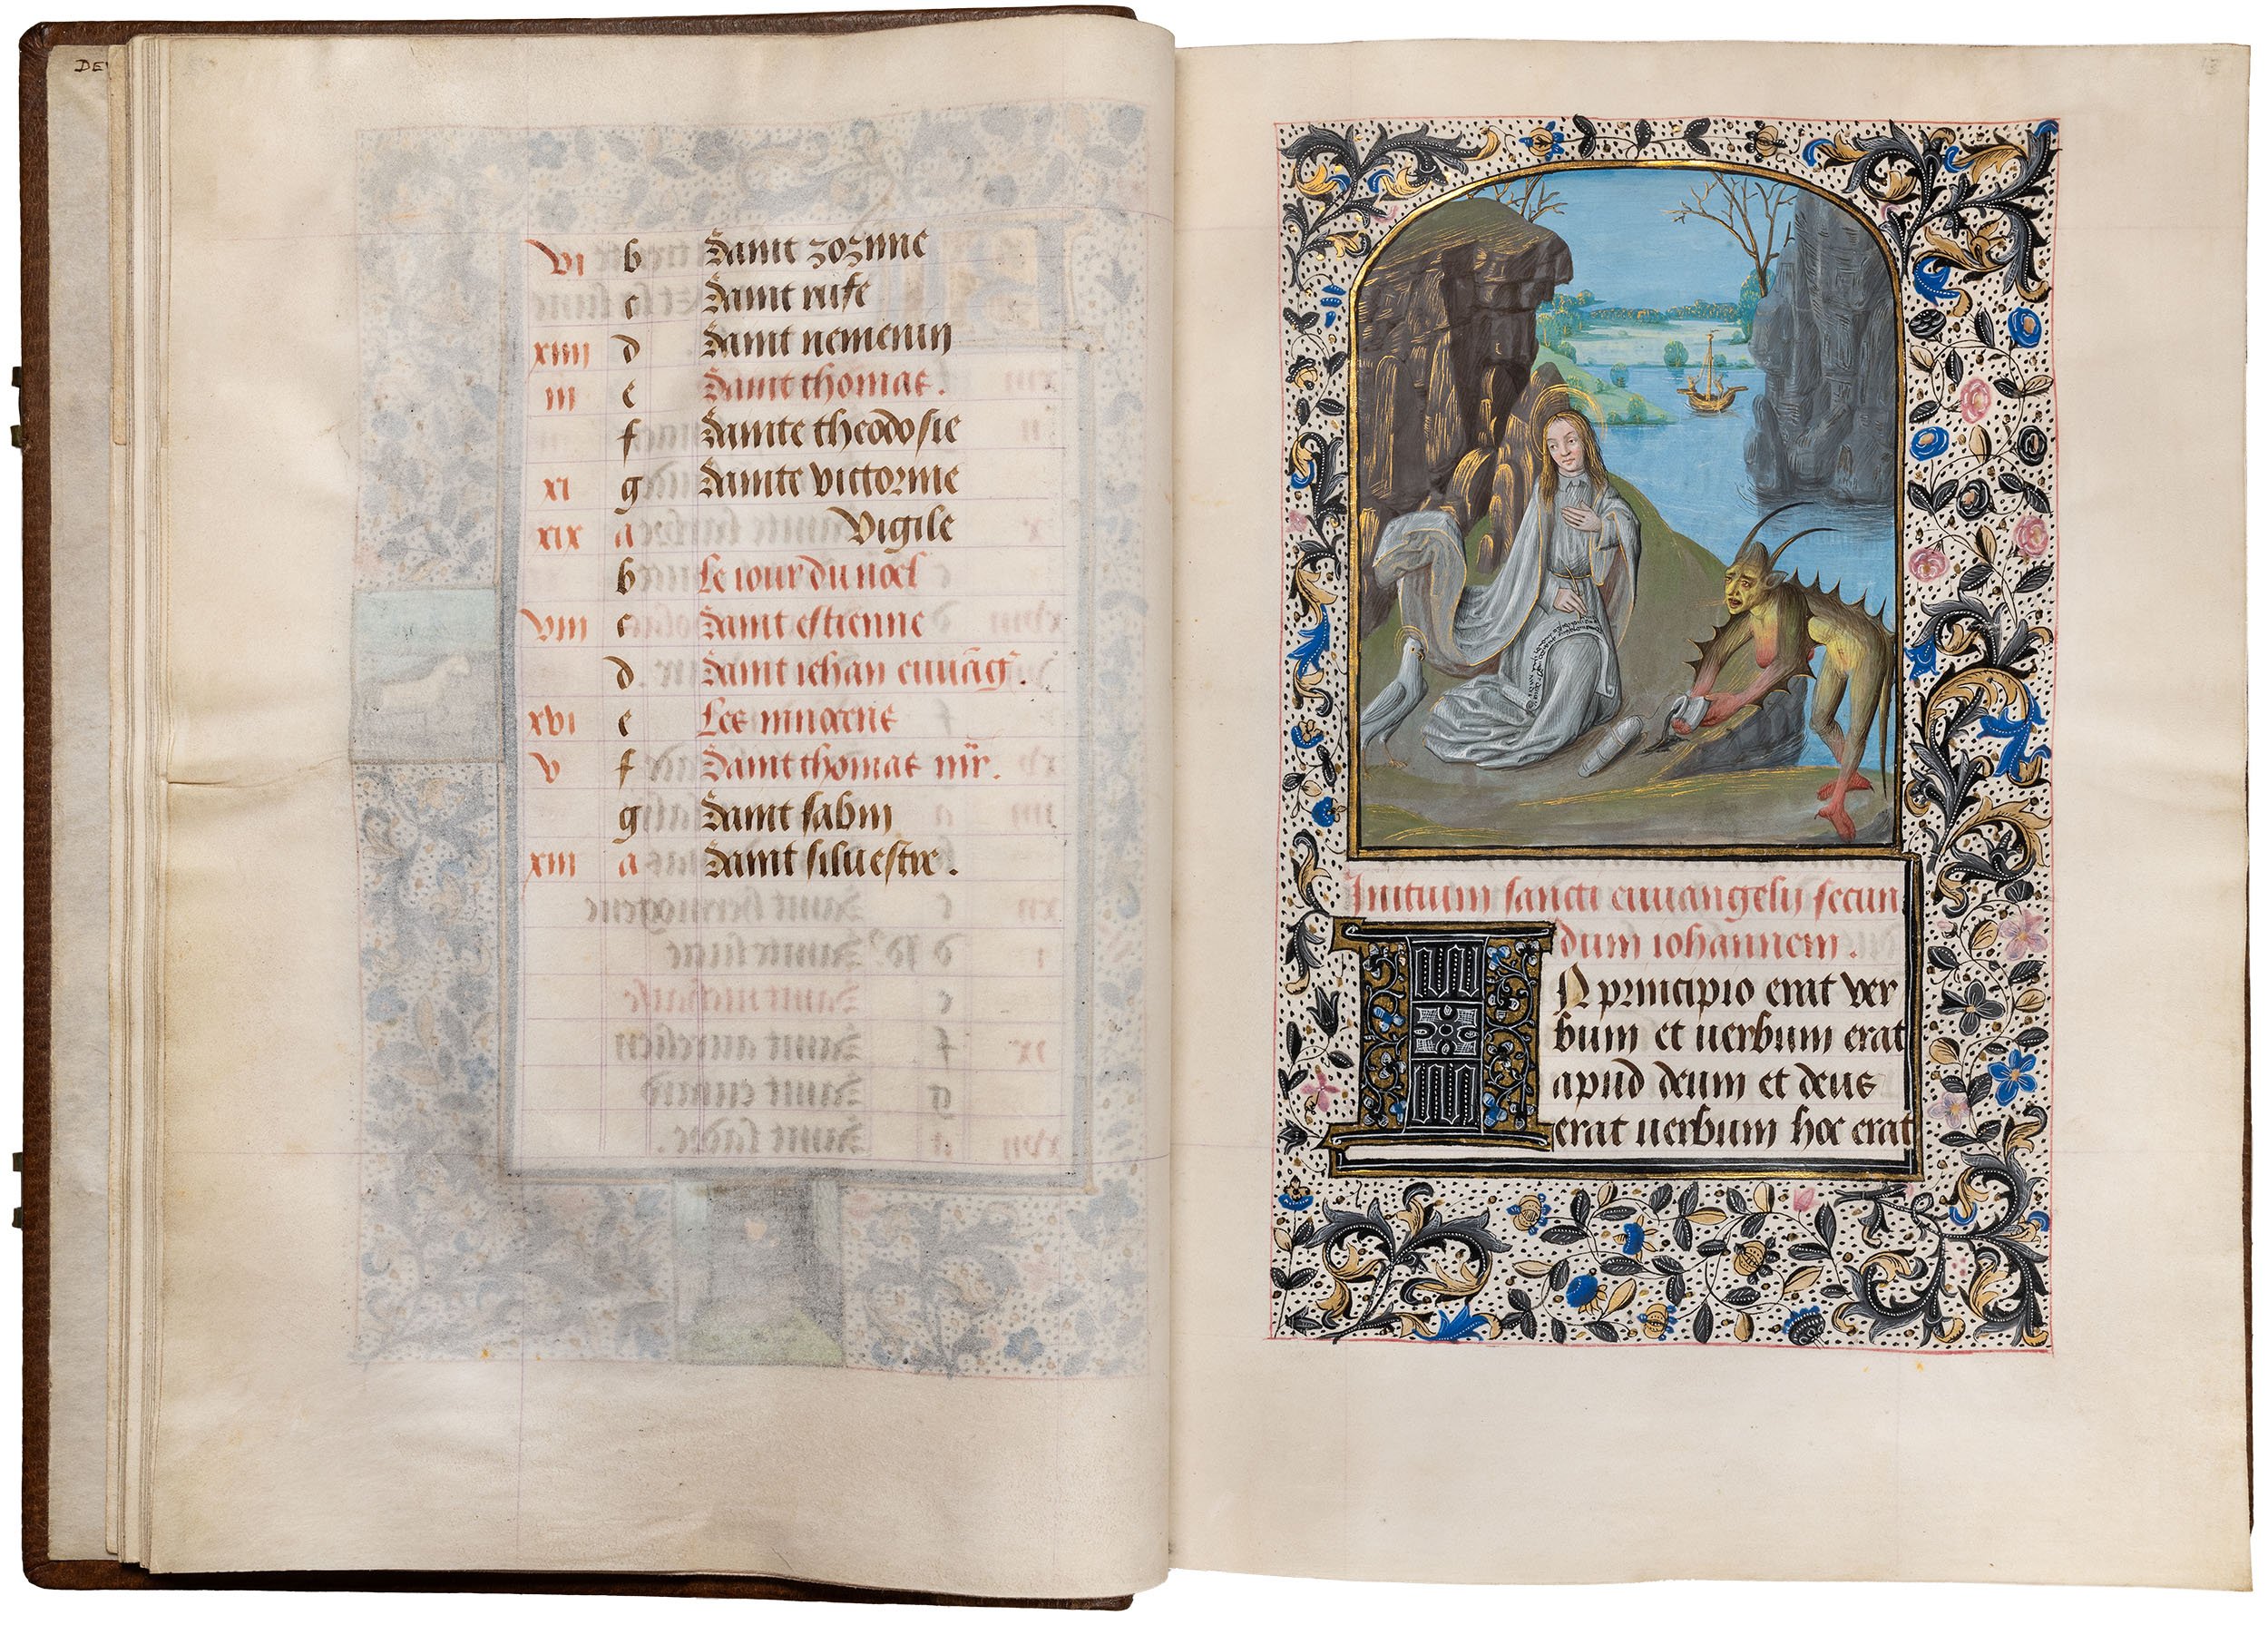 DE
vi b Saint zozime
c Saint rufe
xiiii d Saint nemenin
iii e Saint thomas.
f Sainte theodosie
xi g Sainte victorine
xix a Vigile
b Le iour du noel
viii c Saint estienne
d Saint iehan euuãg̃.
xvi e Les innocens
v f Saint thomas mr̃.
g Saint sabin
xiii a Saint siluestre.
13
Initium sancti euuangelij secun
dum iohannem.
IN principio erat ver
bum et uerbum erat
apud deum et deus
erat uerbum hoc erat